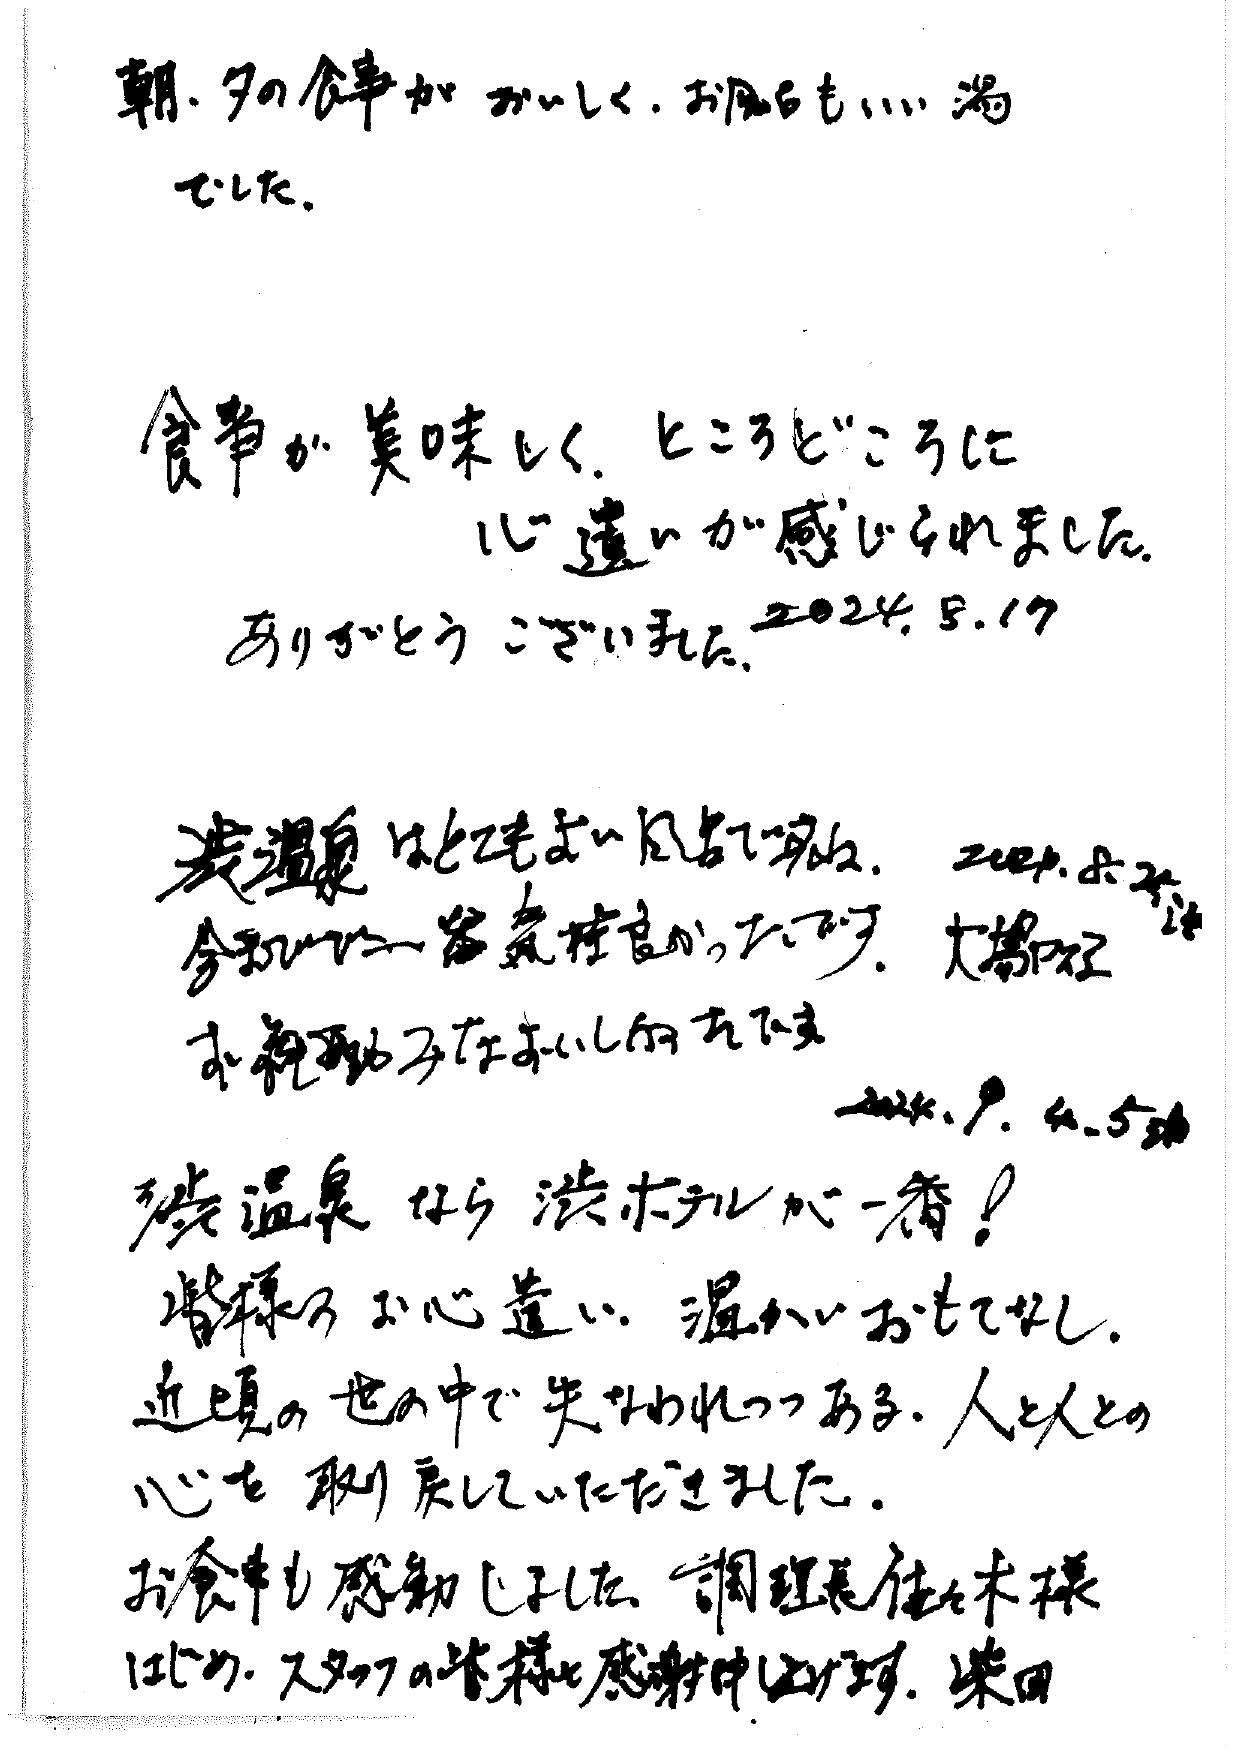 朝、夕の食事がおいしく、お風呂もいい湯
でした。
食事が美味しく、ところどころに
心遣いが感じられました。
ありがとうございました。2024.8.17
渋温泉はとてもよい 2024.8.25
今までで一番気持良かったです。大場
みなおいし
2024.9.4.5
渋温泉なら渋ホテルが一番!
皆様のお心遣い、温かいおもてなし、
近頃の世の中で失なわれつつある、人と人との
心を取り戻していただきました。
お食事も感動しました、調理長佐々木様
はじめ、スタッフの皆様に感謝申し上げます。柴田